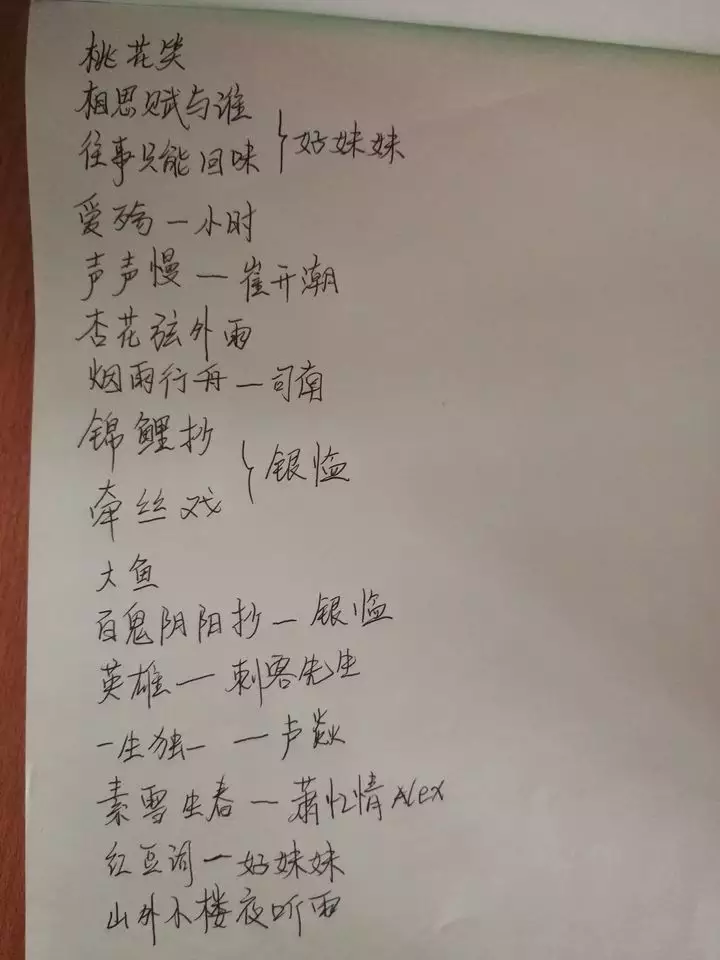 桃花笑
相思赋与谁
往事只能回味 } 好妹妹
爱殇一小时
声声慢一崔开潮
杏花弦外雨
烟雨行舟一司南
锦鲤抄
牵丝戏 } 银临
大鱼
百鬼阴阳抄一银临
英雄一刺客先生
一生独一 一卢焱
素雪生春一萧忆情Alex
红豆词一好妹妹
山外小楼夜听雨